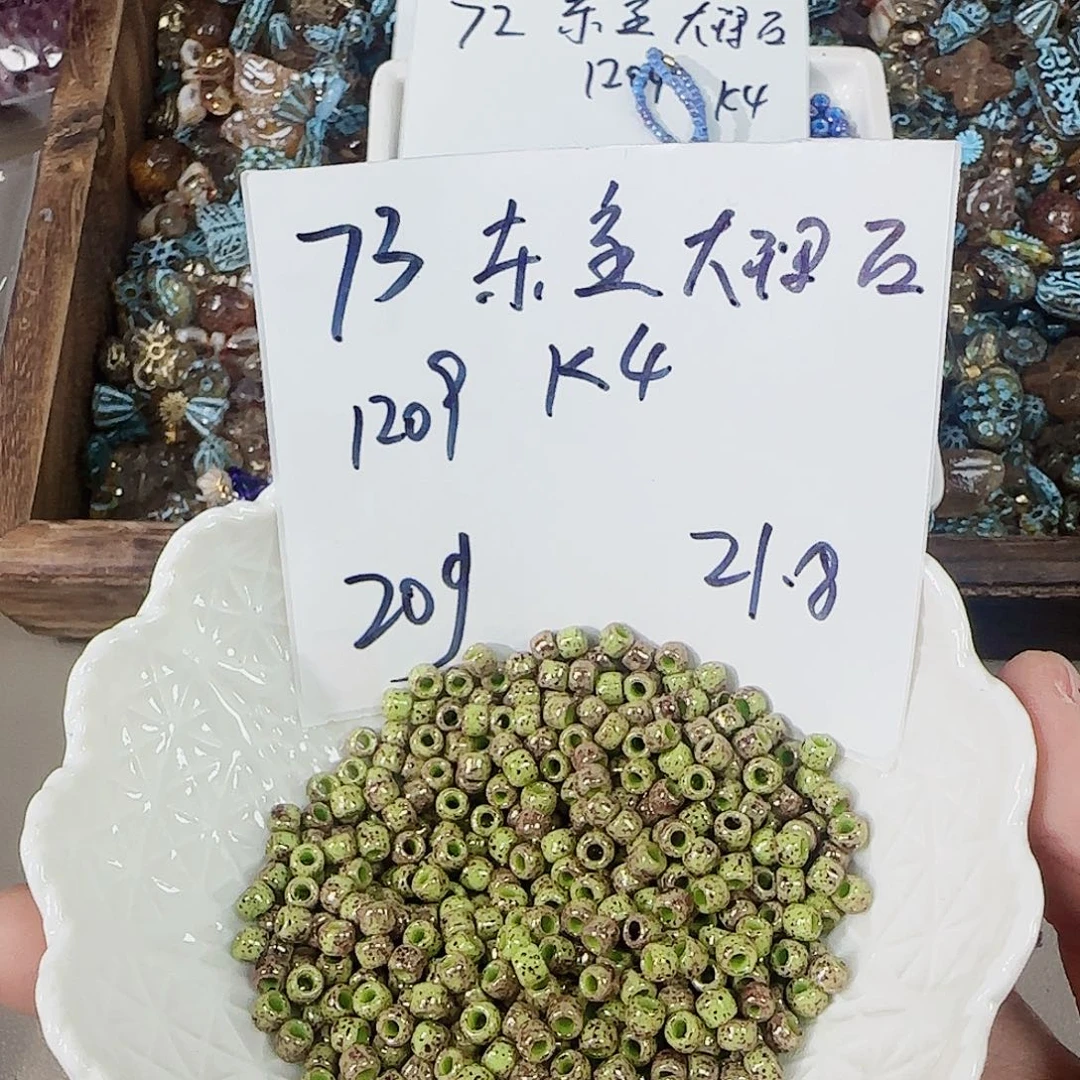 72 东宝大理石
K4
73 东宝大理石
1209 K4
20g 21.8